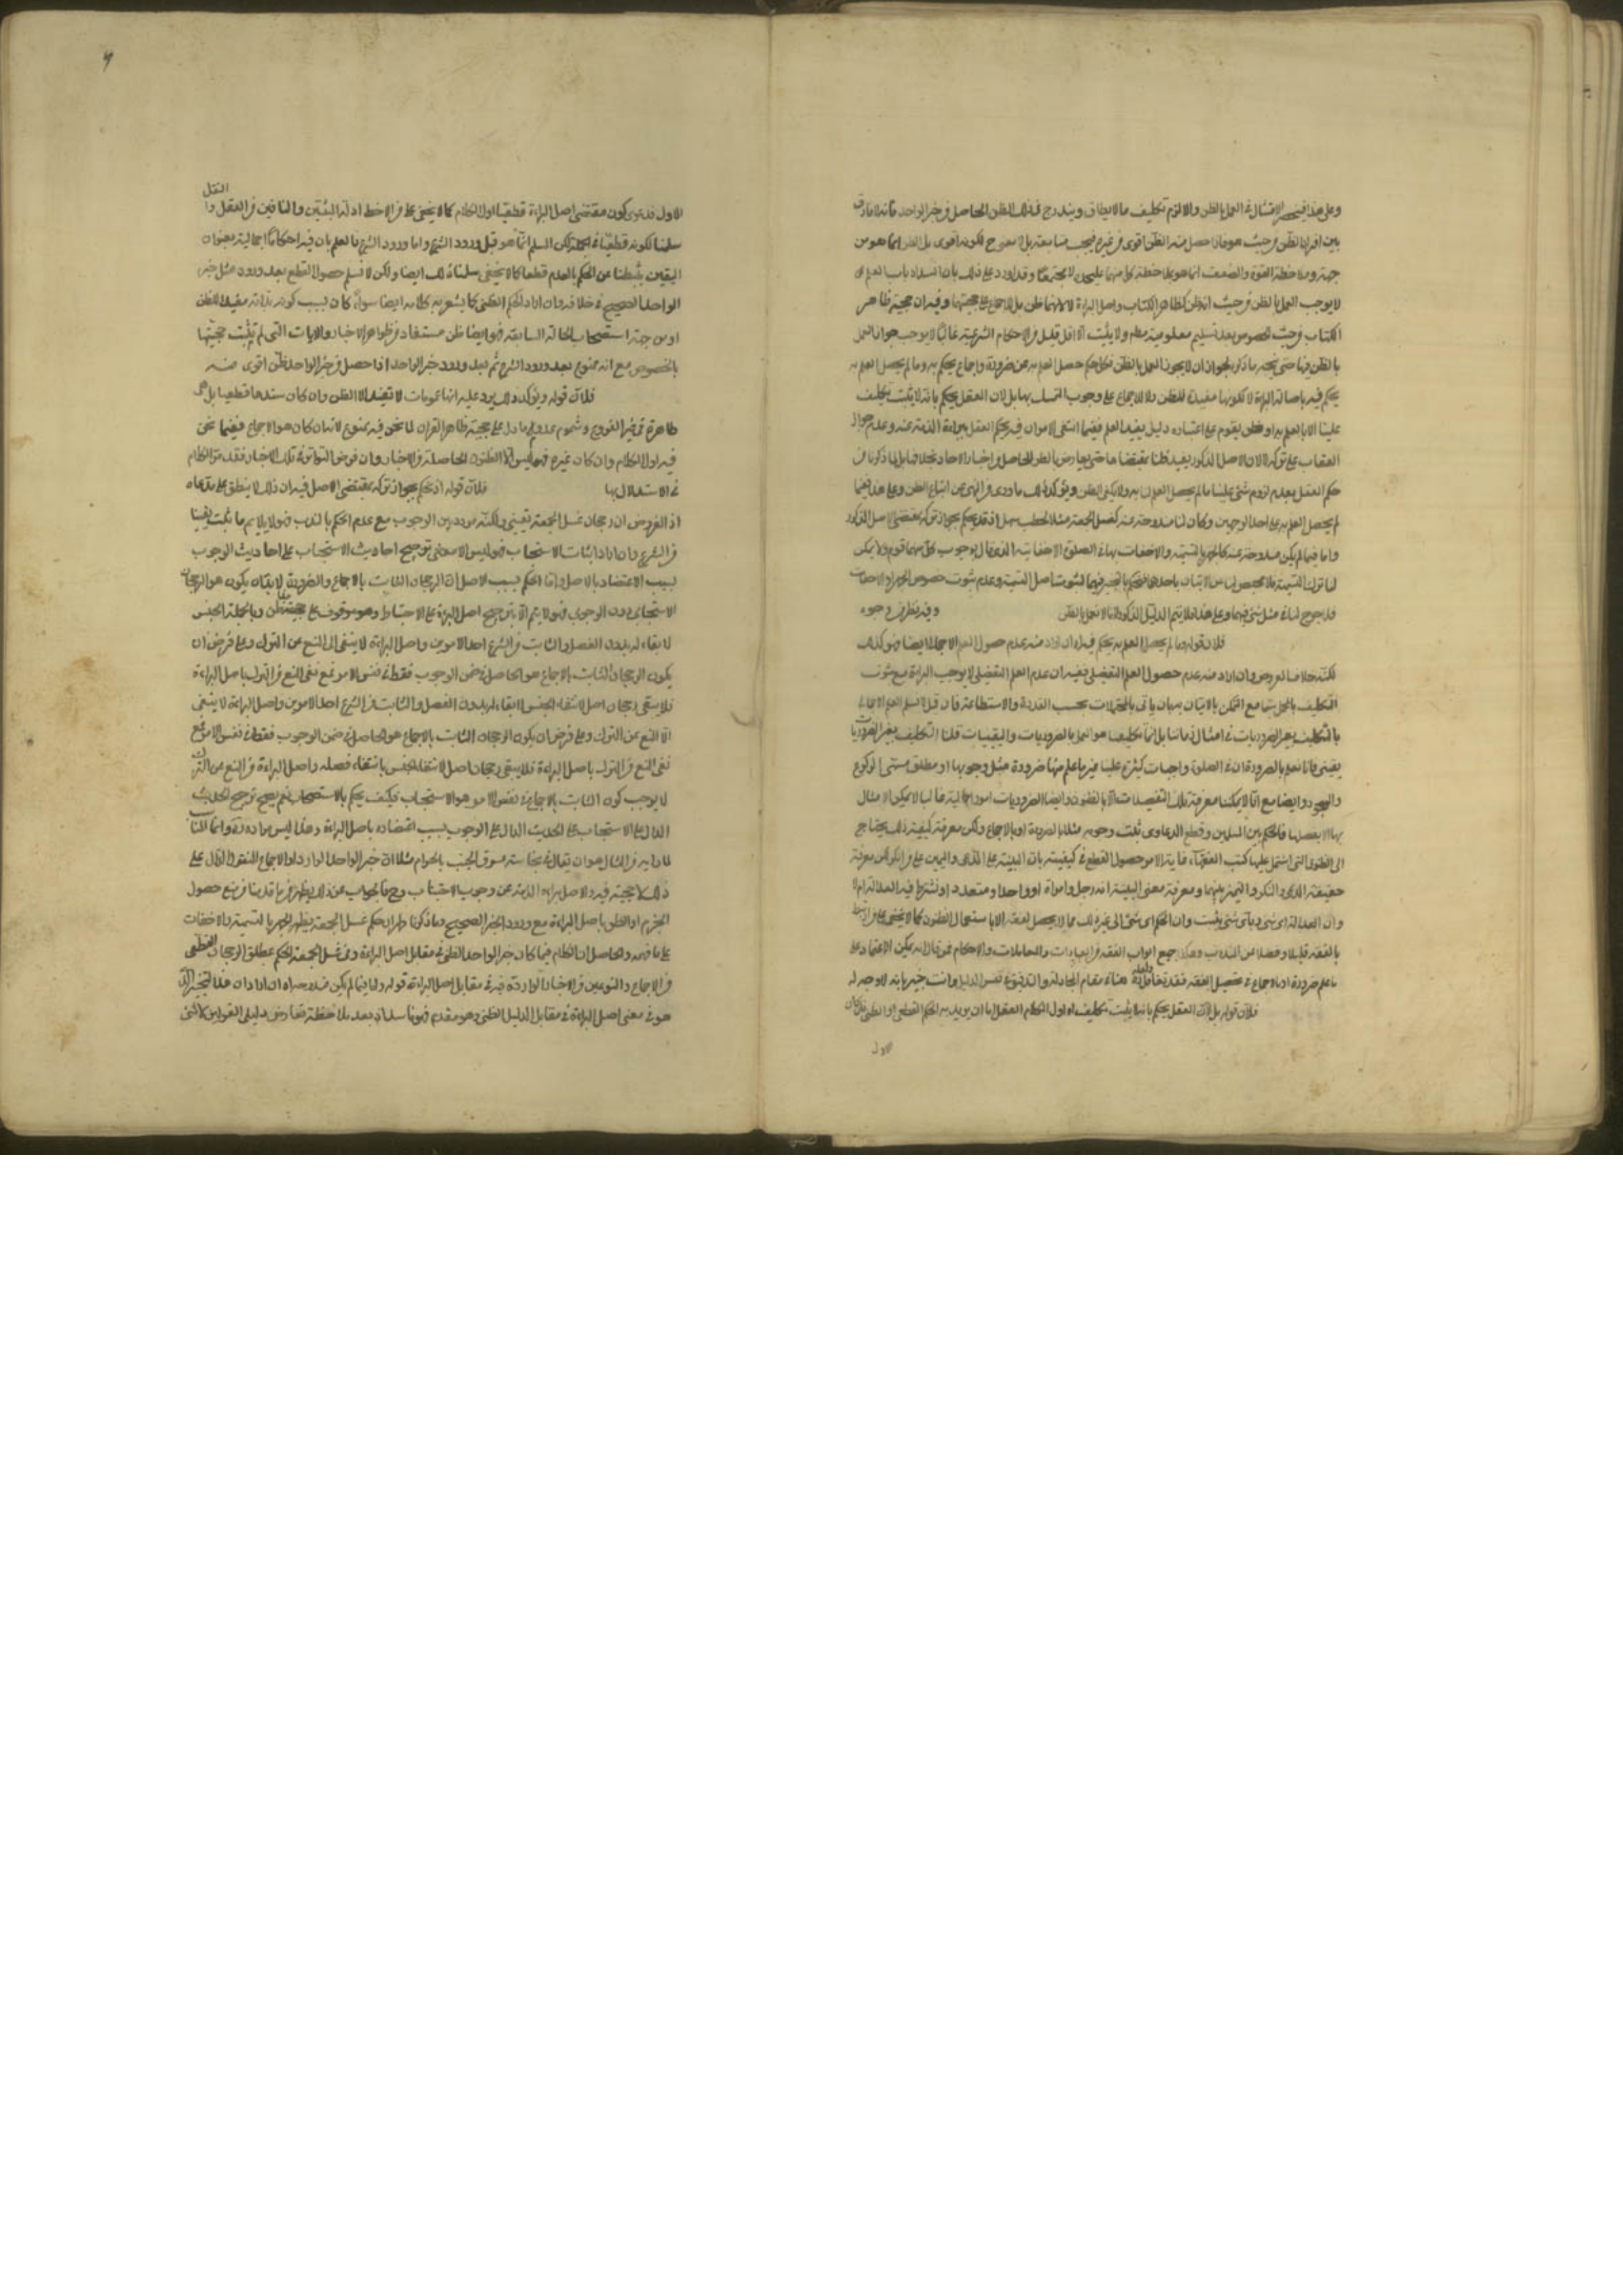 وعلى هذا فينحصر الامتثال في العمل بالظن والا لزم تكليف ما لا يطاق ويندرج في ذلك الظن الحاصل من خبر الواحد فانه لا فارق
بين افراد الظن من حيث هو فاذا حصل منه الظن اقوى من غيره فيجب متابعته
جهة وملاحظة القوة والضعف انما هو بملاحظة كل منهما عليحدة لا مجتمعا وقد اورد على ذلك بان انسداد باب العلم
لا يوجب العمل بالظن من حيث انه ظن كظاهر الكتاب واصل البراءة لا لانهما ظن بل للاجماع على حجيتهما وفيه ان حجية ظاهر
الكتاب من حيث الخصوص بعد تسليم معلوميته مطلقا ولا يثبت الا اقل قليل من الاحكام الشرعية غالبا لا يوجب جواز العمل
بالظن فيها حتى يتجه ما ذكره بجواز ان لا يجوز العمل بالظن فكل حكم حصل العلم به من ضرورة واجماع يحكم به وما لم يحصل العلم به
يحكم فيه باصالة البراءة لا لكونها مفيدة للظن ولا للاجماع على وجوب التمسك بها بل لان العقل يحكم بانه لا يثبت تكليف
علينا الا بالعلم به او بظن يقوم على اعتباره دليل يفيد العلم ففيما انتفى الامران فيه يحكم العقل ببراءة الذمة عنه وعدم جواز
العقاب على تركه لا لان الاصل المذكور يفيد ظنا بمقتضاها حتى يعارض بالظن الحاصل من اخبار الاحاد بخلافها بل لما ذكرنا من
حكم العقل بعدم لزوم شيء علينا ما لم يحصل العلم لنا به ولا يكفي الظن ويؤكد ذلك ما ورد من النهي عن اتباع الظن وعلى هذا ففيما
لم يحصل العلم به على احد الوجهين وكان لنا مندوحة عنه كغسل الجمعة مثلا الخطب سهل اذ قد يحكم بجواز تركه بمقتضى الاصل المذكور
واما فيما لم يكن مندوحة عنه كالجهر بالتسمية والاخفات بها في الصلوة الاخفاتية التي قال بوجوب كل منهما قوم ولا يمكن
لنا ترك التسمية فلا محيص لنا من الاتيان باحدهما فيحكم بالتخيير فيهما لثبوت اصل التسمية وعدم ثبوت خصوص الجهر او الاخفات
فلا حرج لنا في مثل شيء فيهما وعلى هذا فلا يتم الدليل المذكور لانا لا نعمل بالظن وفيه نظر من وجوه
فلان قوله وما لم يحصل العلم به يحكم فيه ان اراد منه عدم حصول العلم الاجمالي ايضا فهو كذلك
لكنه خلاف المفروض وان اراد منه عدم حصول العلم التفصيلي ففيه ان عدم العلم التفصيلي لا يوجب البراءة مع ثبوت
التكليف بالمجمل سيما مع التمكن بالاتيان به بان ياتي بالمحتملات بحسب القدرة والاستطاعة فان قلت لا نسلم العلم الاجمالي
بالتكليف بغير الضروريات في امثال زماننا بل انما تكليفنا هو العمل بالضروريات واليقينيات قلنا التكليف بغير الضروريات
يقيني فانا نعلم بالضرورة ان في الصلوة واجبات كثيرة علينا غير ما علم منها ضرورة مثل وجوبها او مطلق مسمى الركوع
والسجود وايضا مع انا لا يمكننا معرفة تلك التفصيلات الا بالظنون وايضا الضروريات امور اجمالية غالبا لا يمكن الامتثال
بها الا بتفصيلها فالحكم بين المسلمين وقطع الدعاوى ثبت وجوبه مثلا بالضرورة او بالاجماع ولكن معرفة كيفية ذلك يحتاج
الى الظنون التي اشتمل عليها كتب الفقهاء، غاية الامر حصول القطع في كيفيته بان البينة على المدعي واليمين على من انكر لكن معرفة
حقيقة المدعي والمنكر والتميز بينهما ومعرفة معنى البينة انه رجل وامراة او واحد او متعدد او تشترط فيه العدالة ام لا
وان العدالة اي شيء وباي شيء يثبت وان الحكم اي شيء الى غير ذلك مما لا يحصل لفقيه الا باستعمال الظنون كما لا يخفى على من ارتبط
بالفقه قليلا فضلا عن المتدرب وهكذا جميع ابواب الفقه من العبادات والمعاملات والاحكام فمن قال انه يمكن الاعتماد على
ما علم ضرورة او بالاجماع في تحصيل الفقه فقد هنا في مقام المجادلة والتدقيق في نفس الدليل وانت خبير بانه لا وجه له
فلان قوله بل لان العقل يحكم بانه لا يثبت تكليف اه اول الكلام العقل اما ان يريد به الحكم القطعي او الظني فان كان
الاول
الاول فدعوى كون مقتضى اصل البراءة قطعيا اول الكلام كما لا يخفى على من لاحظ ادلة المثبتين والنافين من العقل والنقل
سلمنا كونه قطعيا في الجملة لكن المسلم انما هو قبل ورود الشرع واما ورود الشرع فالعلم بان فيه احكاما اجمالية بعنوان
اليقين يثبطنا عن الحكم بالعدم قطعا كما لا يخفى سلمنا ذلك ايضا ولكن لا نسلم حصول القطع بعد ورود مثل خبر
الواحد الصحيح في خلافه وان اراد الحكم الظني كما يشعر به كلامه ايضا سواء كان بسبب كونه بذاته مفيدا للظن
او من جهة استصحاب الحالة السابقة فهو ايضا ظن مستفاد من ظواهر الاخبار والايات التي لم يثبت حجيتها
بالخصوص مع انه ممنوع بعد ورود الشرع ثم بعد ورود خبر الواحد اذا حصل من خبر الواحد ظن اقوى منه
فلان قوله ويؤكد ذلك يرد عليه انها عمومات لا تفيد الا الظن وان كان سندها قطعيا بل هي
ظاهرة في غير الفروع وشموم عموم ما دل على حجية ظاهر القران لما نحن فيه ممنوع لانه ان كان هو الاجماع ففيما نحن
فيه اول الكلام وان كان غيره فهو ليس الا الظنون الحاصلة من الاخبار وان فرض التواتر في تلك الاخبار فقد مر الكلام
في الاستدلال بها فلان قوله اذ نحكم بجواز تركه بمقتضى الاصل فيه ان ذلك لا ينطبق على مدعاه
اذ الفرض ان رجحان غسل الجمعة يقيني ولكنه مردد بين الوجوب مع عدم الحكم بالندب فهو لا يلائم ما ثبت يقينا
من الشرع وان اراد اثبات الاستحباب فهو ليس الا معنى ترجيح احاديث الاستحباب على احاديث الوجوب
بسبب الاعتضاد بالاصل واما الحكم بسبب الاصل ان الرجحان الثابت بالاجماع والضرورة لا بد ان يكون هو الرجحان
الاستحبابي دون الوجوبي فهو لا يتم الا بترجيح اصل البراءة على الاحتياط وهو موقوف على حجية ظن وبالجملة الجنس
لا بقاء له بدون الفصل والثابت من الشرع احد الامرين واصل البراءة لا ينفي الا المنع من الترك وعلى فرض ان
يكون الرجحان الثابت بالاجماع هو الحاصل في ضمن الوجوب فقط في نفس الامر فمع نفي المنع من الترك باصل البراءة
فلا يبقى رجحان اصلا لانتفاء الجنس لا بقاء له بدون الفصل والثابت من الشرع احد الامرين واصل البراءة لا ينفي
الا المنع عن الترك وعلى فرض ان يكون الرجحان الثابت بالاجماع هو الحاصل في ضمن الوجوب فقط في نفس الامر فمع
نفي المنع من الترك باصل البراءة فلا يبقى رجحان اصلا لانتفاء الجنس بانتفاء فصله واصل البراءة من المنع عن الترك
لا يوجب كون الثابت بالاجماع في نفس الامر هو الاستحباب فكيف يحكم بالاستحباب نعم يصح ترجيح الحديث
الدال على الاستحباب على الحديث الدال على الوجوب بسبب اعتضاده باصل البراءة وهذا ليس مراده وانما المناسب
لما رامه من المثال هو ان يقال في نجاسة عرق الجنب بالحرام مثلا ان خبر الواحد الوارد او الاجماع المنقول الدال على
ذلك لا حجية فيه والاصل براءة الذمة عن وجوب الاجتناب وح فالجواب عن ذلك يظهر مما قدمنا من منع حصول
الجزم او الظن باصل البراءة مع ورود الخبر الصحيح وما ذكرنا ظهر ان حكم غسل الجمعة يظهر الجهر بالتسمية والاخفات
على ما فهمه والحاصل ان الكلام فيما كان خبر الواحد الظني في مقابل اصل البراءة وفي غسل الجمعة الحكم بمطلق الرجحان القطعي
من الاجماع والنوعين من الاخبار الواردة فيه في مقابل اصل البراءة قوله واما فيما لم يكن مندوحة اه ان اراد ان هذا التخيير الذي
هو في معنى اصل البراءة في مقابل الدليل الظني وهو مقدم فهو فاسد اذ بعد ملاحظة تعارض دليلي القولين لا شيء